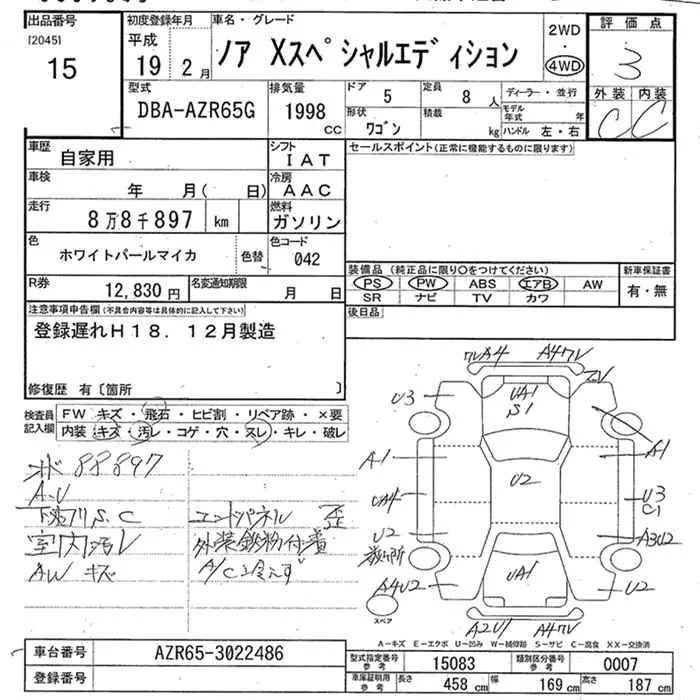 出品番号
[2045]
15
初度登録年月
平成
19 2月
車名・グレード
ノア Xスペシャルエディション
2WD
・
4WD
評価点
3
外装 内装
C C
型式
DBA-AZR65G
排気量
1998
CC
ドア
5
定員
8人
形状
ワゴン
積載
kg
ディーラー・並行
モデル年式 年
ハンドル 左・右
車歴
自家用
シフト
IAT
車検
年 月( 日)
冷房
AAC
走行
8万8千897 km
燃料
ガソリン
色
ホワイトパールマイカ
色替
色コード
042
R券
12,830円
名変通知期限
月 日
セールスポイント(正常に機能するものに限ります)
装備品 (純正品に限り○をつけてください)
PS PW ABS エアB AW
SR ナビ TV カワ
新車保証書
有・無
後日品
注意事項申告欄(不具合内容等は具体的に記入して下さい)
登録遅れH18．12月製造
修復歴 有〔箇所 〕
検査員記入欄
FW キズ・飛石・ヒビ割・リペア跡・×要
内装 キズ・汚レ・コゲ・穴・スレ・キレ・破レ
88897
A・U
下廻りS.C
室内汚レ
AW キズ
エンドパネル 歪
外装鉄粉付着
A/C冷えず
ワレA4 A4ワレ
U3
UA1
S1
A1
A1
UA4
U2
U3
C1
U2
A3U2
A4U2
UA1
U2
A2U1 A4ワレ
スペア
A－キズ E－エクボ U－凹み W－補修跡 S－サビ C－腐食 XX－交換済
車台番号
AZR65-3022486
登録番号
型式指定番号
参考
15083
類別区分番号
参考
0007
車庫証明用
参考
長さ
458 cm
幅
169 cm
高さ
187 cm